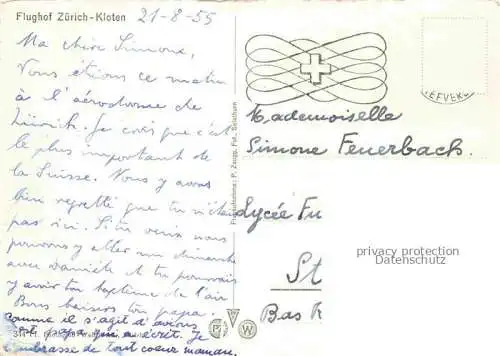 Flughof Zürich-Kloten 21-8-55
Ma chère Simone,
Vous étions ce matin
à l'aérodrome de
Zürich. Je crois que c'est
le plus important de
la Suisse. Nous y avons
bien regretté que tu n'étais
pas ici. Si tu veux nous
pouvons y aller un dimanche
avec Danièle et tu pourrais
y avoir ton baptême de l'air
Bons baisers ton papa.
comme il s'agit d'avions
c'est papa qui a écrit. Je
t'embrasse de tout coeur maman.
Mademoiselle
Simone Feuerbach.
Lycée Fu
St
Bas R
privacy protection
Datenschutz
P W